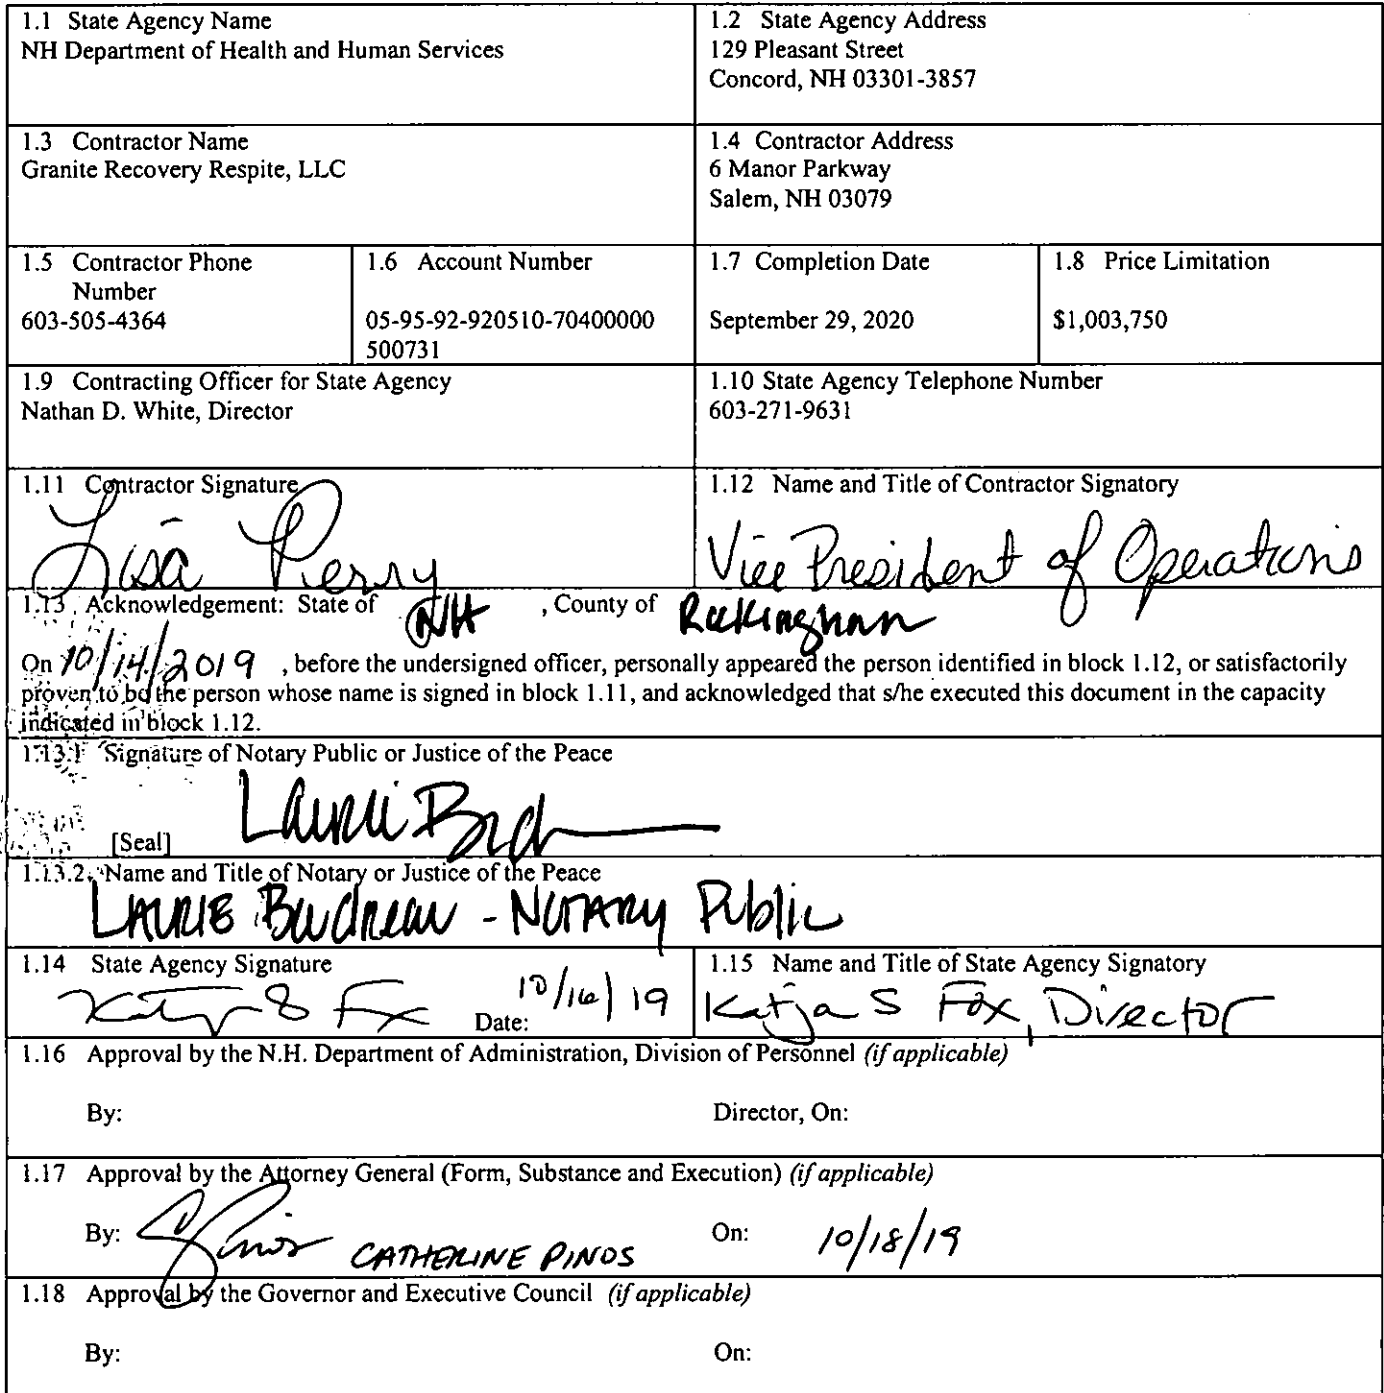 1.1 State Agency Name
NH Department of Health and Human Services
1.2 State Agency Address
129 Pleasant Street
Concord, NH 03301-3857
1.3 Contractor Name
Granite Recovery Respite, LLC
1.4 Contractor Address
6 Manor Parkway
Salem, NH 03079
1.5 Contractor Phone
Number
603-505-4364
1.6 Account Number
05-95-92-920510-70400000
500731
1.7 Completion Date
September 29, 2020
1.8 Price Limitation
$1,003,750
1.9 Contracting Officer for State Agency
Nathan D. White, Director
1.10 State Agency Telephone Number
603-271-9631
1.11 Contractor Signature
Lisa Perry
1.12 Name and Title of Contractor Signatory
Vice President of Operations
1.13 Acknowledgement: State of NH , County of Rockingham
On 10/14/2019 , before the undersigned officer, personally appeared the person identified in block 1.12, or satisfactorily
proven to be the person whose name is signed in block 1.11, and acknowledged that s/he executed this document in the capacity
indicated in block 1.12.
1.13.1 Signature of Notary Public or Justice of the Peace
Laurie
[Seal]
1.13.2 Name and Title of Notary or Justice of the Peace
LAURIE Boudreau - NOTARY Public
1.14 State Agency Signature
Date: 10/16/19
1.15 Name and Title of State Agency Signatory
Katja S Fox, Director
1.16 Approval by the N.H. Department of Administration, Division of Personnel (if applicable)
By: Director, On:
1.17 Approval by the Attorney General (Form, Substance and Execution) (if applicable)
By: CATHERINE PINOS On: 10/18/19
1.18 Approval by the Governor and Executive Council (if applicable)
By: On: